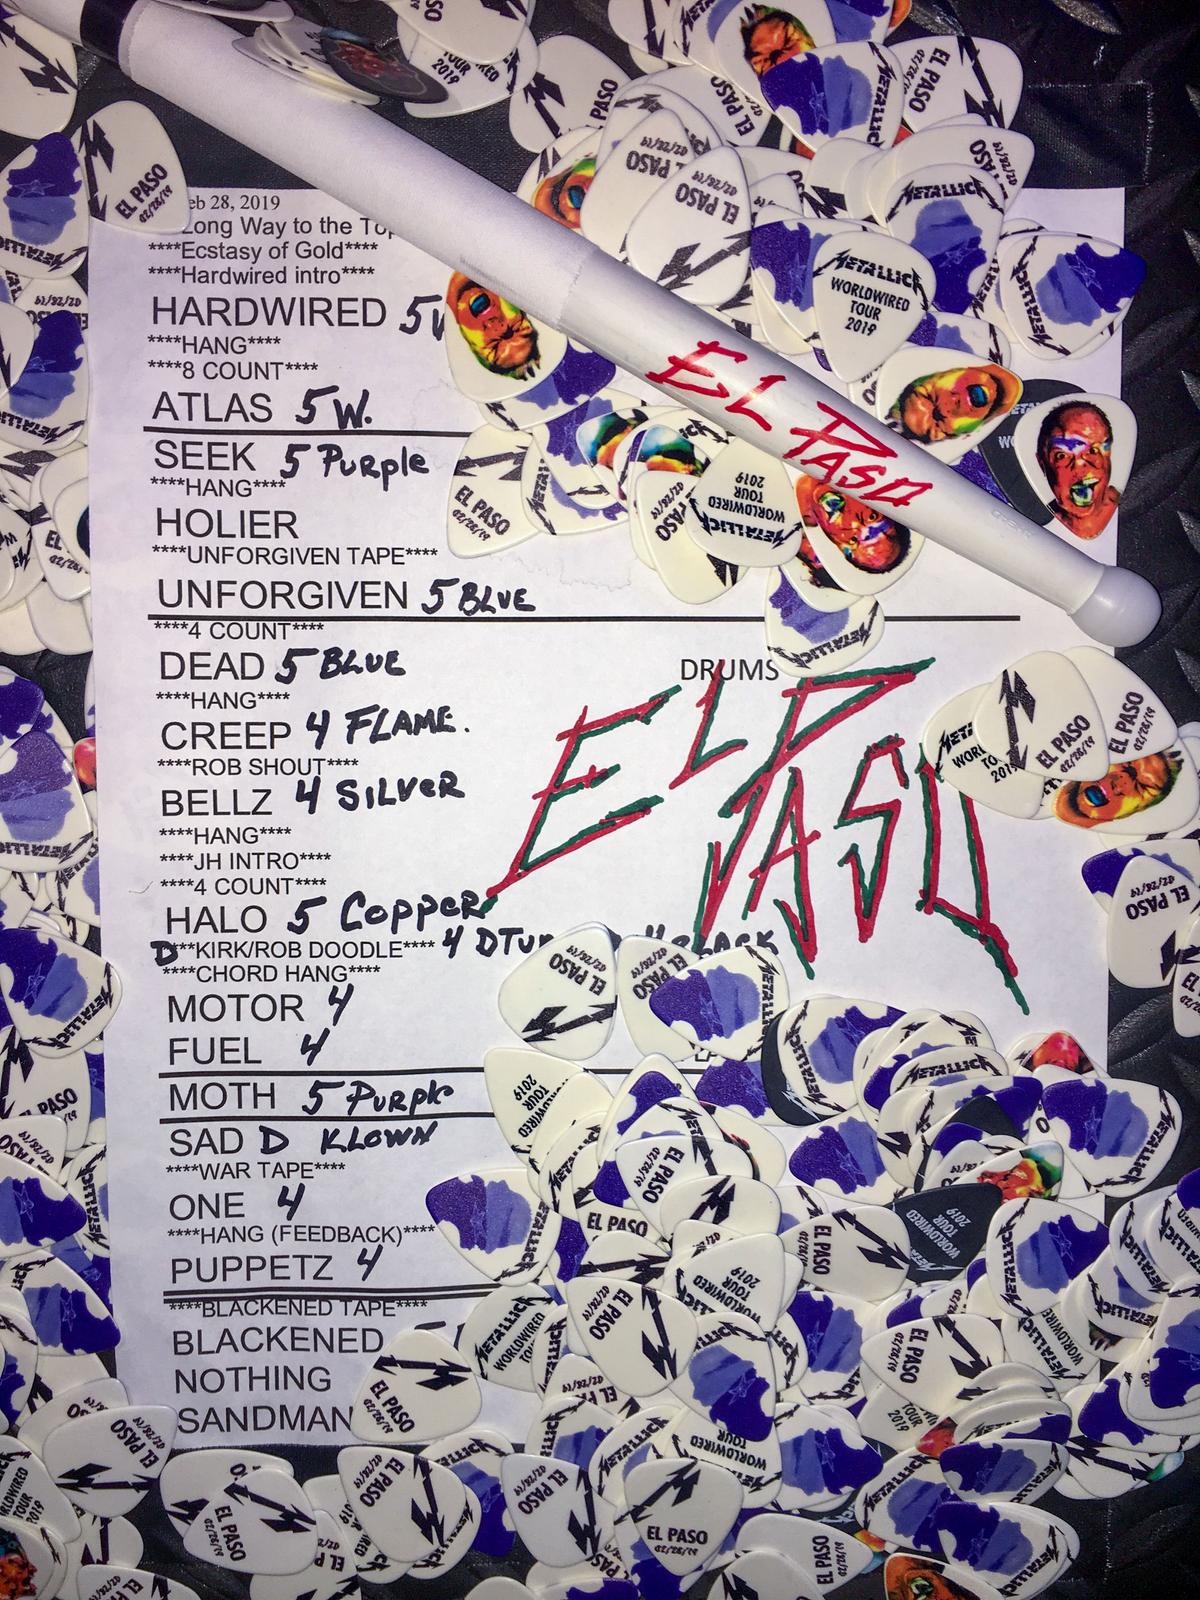 eb 28, 2019
Long Way to the Top
****Ecstasy of Gold****
****Hardwired intro****
HARDWIRED 5
****HANG****
****8 COUNT****
ATLAS 5 W.
SEEK 5 Purple
****HANG****
HOLIER
****UNFORGIVEN TAPE****
UNFORGIVEN 5 BLUE
****4 COUNT****
DEAD 5 BLUE
DRUMS
****HANG****
CREEP 4 FLAME.
****ROB SHOUT****
BELLZ 4 SILVER
****HANG****
****JH INTRO****
****4 COUNT****
HALO 5 Copper
D***KIRK/ROB DOODLE**** 4 DTU 4 BLACK
****CHORD HANG****
MOTOR 4
FUEL 4
MOTH 5 Purple
SAD D KLOWN
****WAR TAPE****
ONE 4
****HANG (FEEDBACK)****
PUPPETZ 4
****BLACKENED TAPE****
BLACKENED
NOTHING
SANDMAN
EL PASO
EL PASO
EL PASO
02/28/19
METALLICA
WORLDWIRED
TOUR
2019